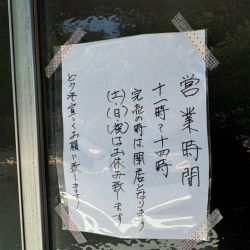 営業時間
十一時〜十四時
完売の時は閉店となります
(土)(日)(祝)はお休み致します
どうぞ宜しくお願い致します